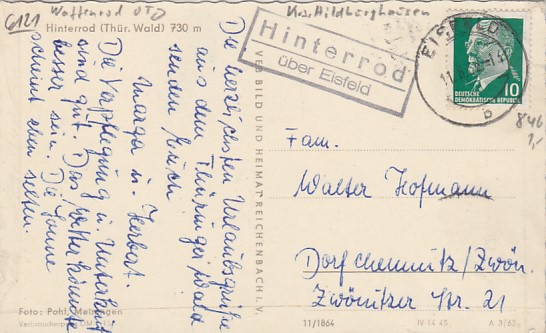 6121
Waffenrod OTD
Krs. Hildburghausen
Hinterrod (Thür. Wald) 730 m
Hinterrod
über Eisfeld
EISFELD
DEUTSCHE
DEMOKRATISCHE REPUBLIK
10
b
846
1,-
Die herzlichsten Urlaubsgrüße
aus dem Thüringer Wald
senden Euch
Marga u. Herbert.
Die Verpflegung u. Unterkunft
sind gut. Das Wetter könnte
besser sein. Die Sonne
scheint eben selten.
VEB BILD UND HEIMAT REICHENBACH I. V.
Fam.
Walter Hofmann
Dorfchemnitz/Zwön.
Zwönitzer Str. 21
Foto: Pohl, Meiningen
11/1864
IV-14-45
A 3/63